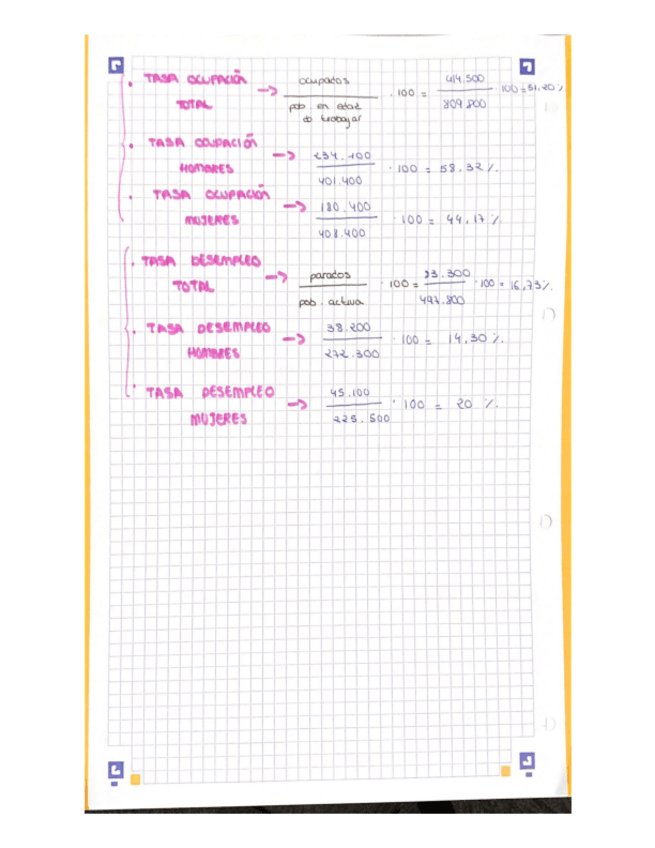 . TASA OCUPACIÓN TOTAL → ocupados / pob. en edad de trabajar · 100 = 414.500 / 809.800 · 100 = 51,20 %
. TASA OCUPACIÓN HOMBRES → 234.100 / 401.400 · 100 = 58.32 %.
. TASA OCUPACIÓN MUJERES → 180.400 / 408.400 · 100 = 44,17 %
. TASA DESEMPLEO TOTAL → parados / pob. activa · 100 = 83.300 / 497.800 · 100 = 16,73%.
. TASA DESEMPLEO HOMBRES → 38.200 / 272.300 · 100 = 14,30 %.
. TASA DESEMPLEO MUJERES → 45.100 / 225.500 · 100 = 20 %.